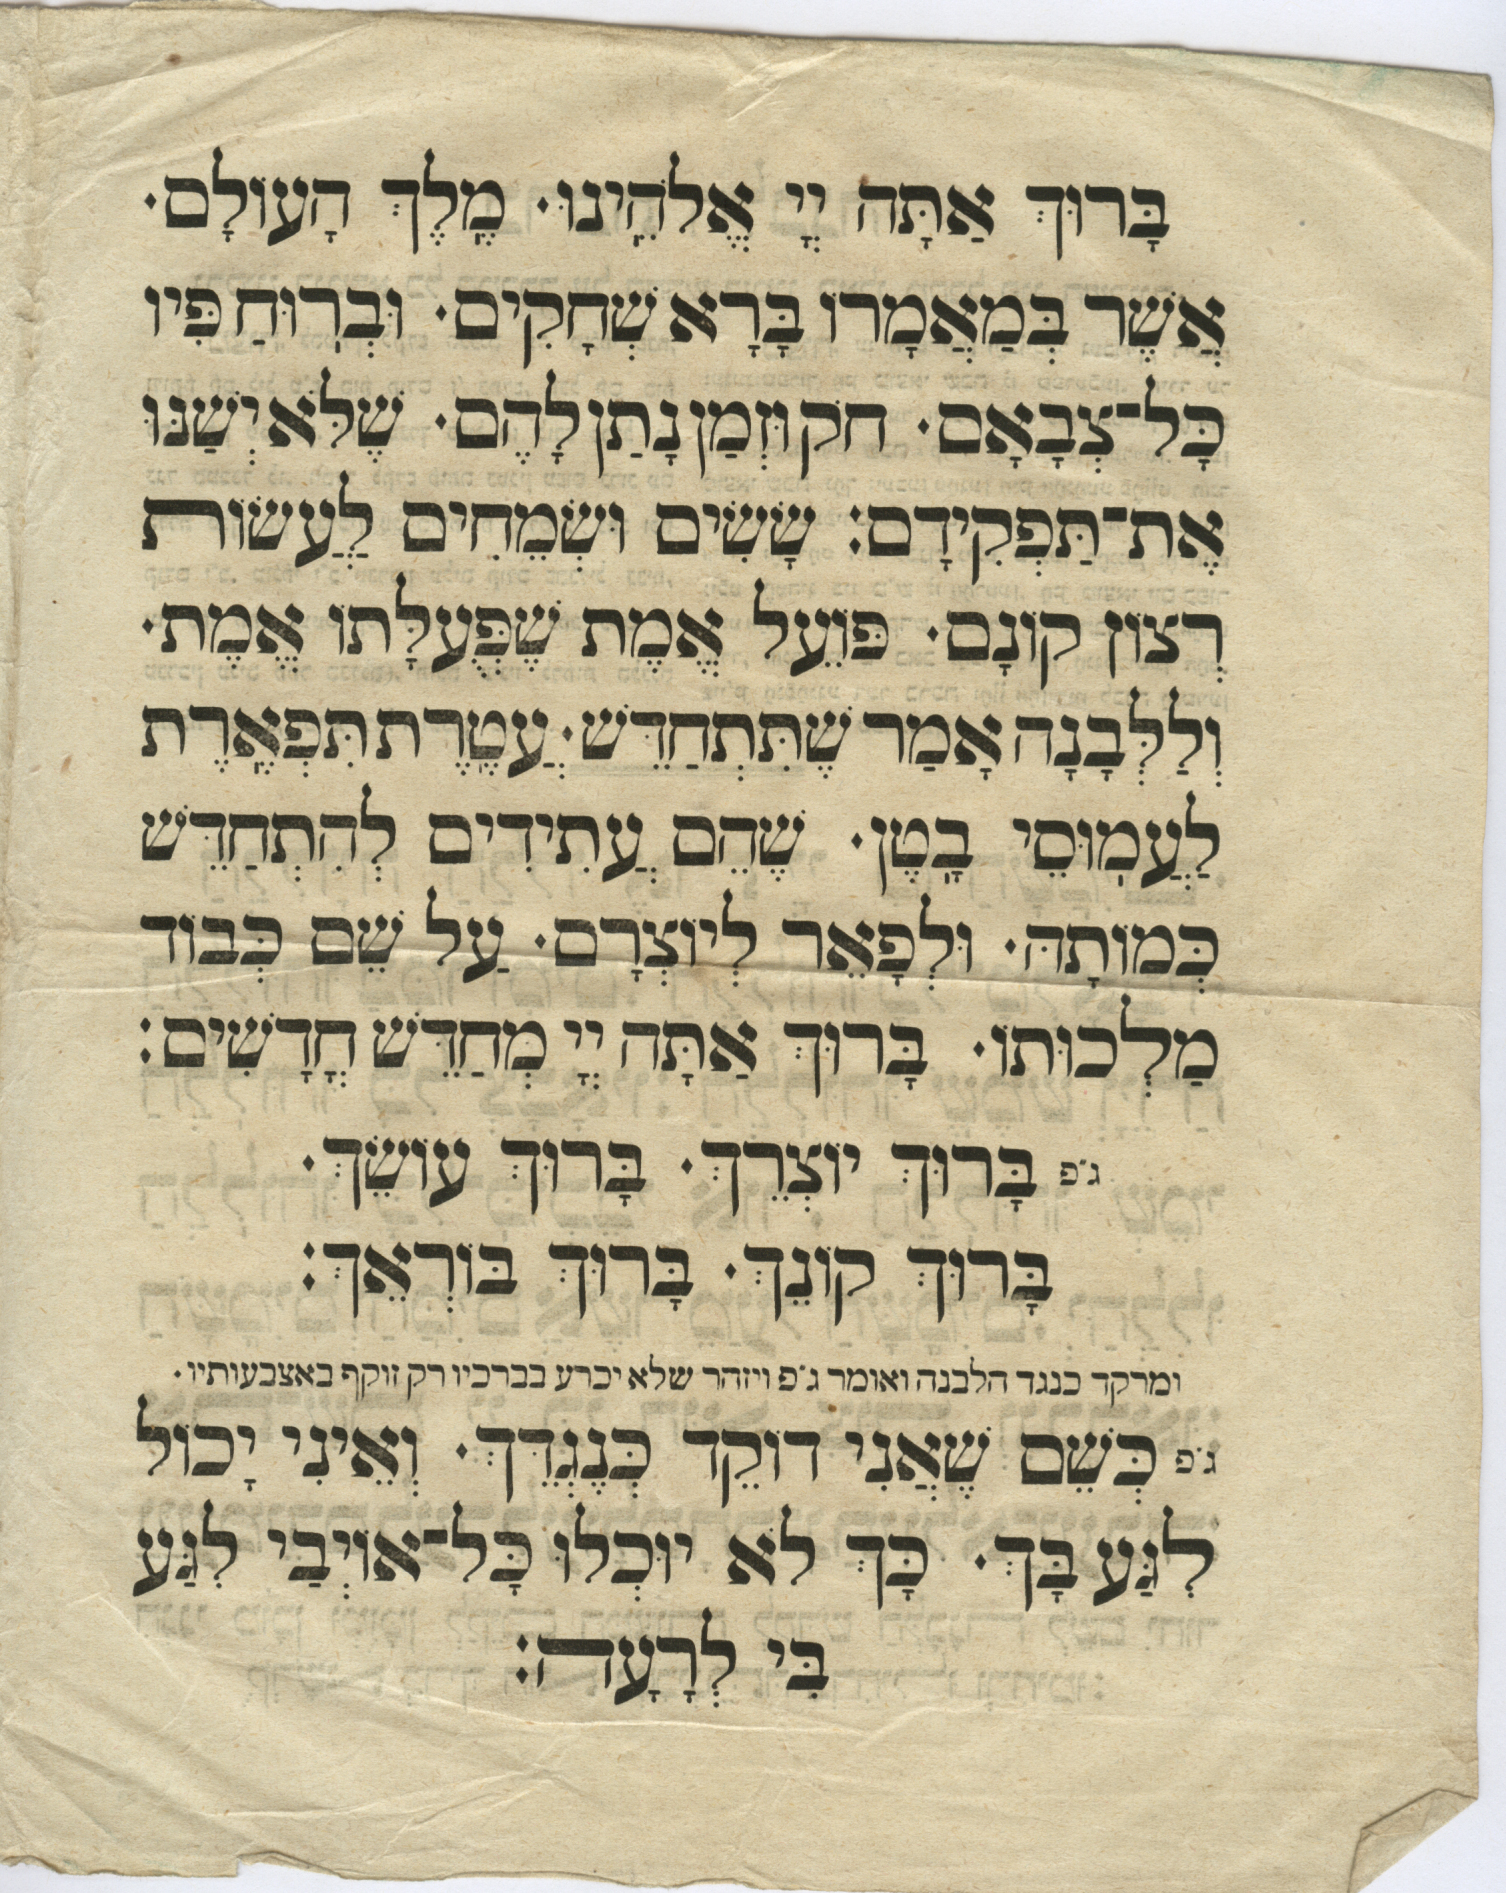 בָּרוּךְ אַתָּה יְיָ אֱלֹהֵינוּ· מֶלֶךְ הָעוֹלָם·
אֲשֶׁר בְּמַאֲמָרוֹ בָּרָא שְׁחָקִים· וּבְרוּחַ פִּיו
כָּל־צְבָאָם· חֹק וּזְמַן נָתַן לָהֶם· שֶׁלֹּא יְשַׁנּוּ
אֶת־תַּפְקִידָם: שָׂשִׂים וּשְׂמֵחִים לַעֲשׂוֹת
רְצוֹן קוֹנָם· פּוֹעֵל אֱמֶת שֶׁפְּעֻלָּתוֹ אֱמֶת·
וְלַלְּבָנָה אָמַר שֶׁתִּתְחַדֵּשׁ· עֲטֶרֶת תִּפְאֶרֶת
לַעֲמוּסֵי בָטֶן· שֶׁהֵם עֲתִידִים לְהִתְחַדֵּשׁ
כְּמוֹתָהּ· וּלְפָאֵר לְיוֹצְרָם· עַל שֵׁם כְּבוֹד
מַלְכוּתוֹ· בָּרוּךְ אַתָּה יְיָ מְחַדֵּשׁ חֳדָשִׁים:
ג״פ בָּרוּךְ יוֹצְרֵךְ· בָּרוּךְ עוֹשֵׂךְ·
בָּרוּךְ קוֹנֵךְ· בָּרוּךְ בּוֹרְאֵךְ:
ומרקד כנגד הלבנה ואומר ג״פ ויזהר שלא יכרע בברכיו רק זוקף באצבעותיו·
ג״פ כְּשֵׁם שֶׁאֲנִי רוֹקֵד כְּנֶגְדֵּךְ· וְאֵינִי יָכוֹל
לִגַּע בָּךְ· כָּךְ לֹא יוּכְלוּ כָּל־אוֹיְבַי לִגַּע
בִּי לְרָעָה: